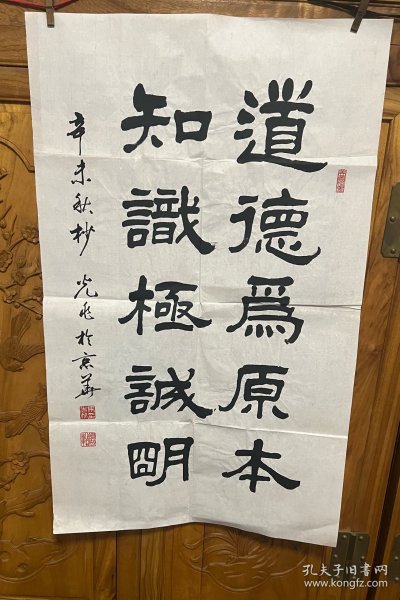 道德為原本
知識極誠明
辛未秋杪 光兆於京華
孔夫子旧书网
www.kongfz.com